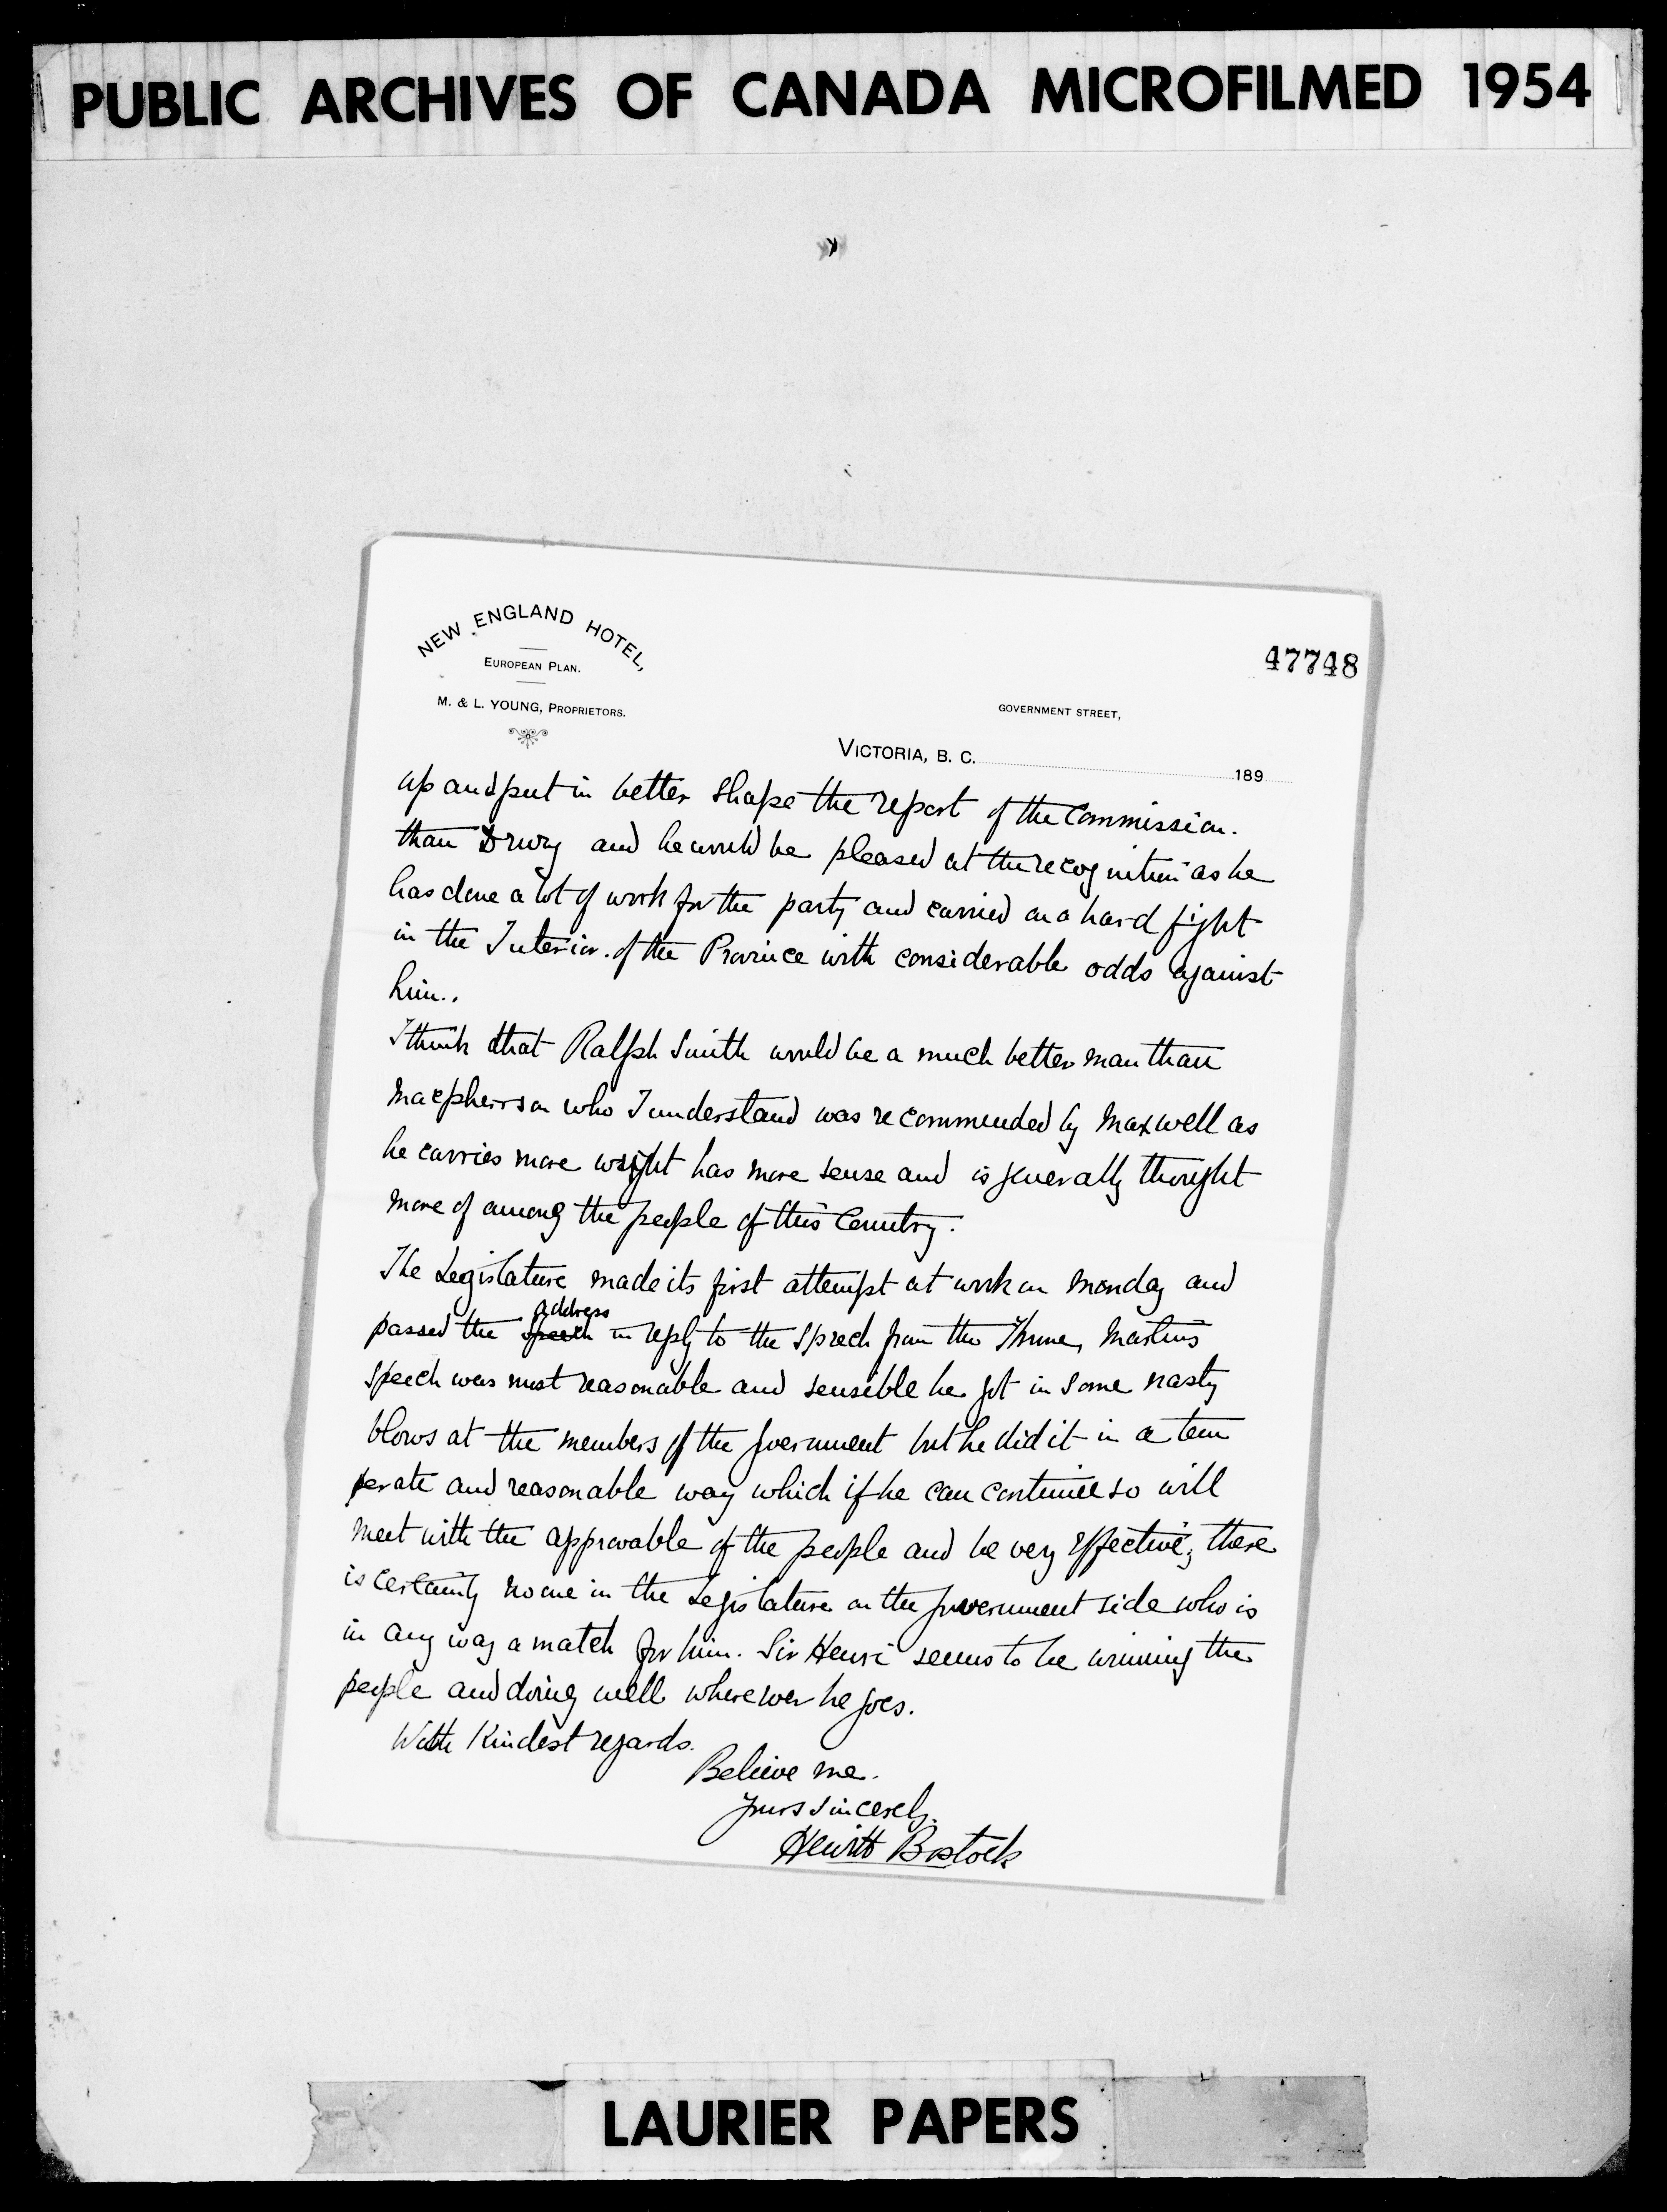 PUBLIC ARCHIVES OF CANADA MICROFILMED 1954
NEW ENGLAND HOTEL,
EUROPEAN PLAN.
M. & L. YOUNG, PROPRIETORS.
47748
GOVERNMENT STREET,
VICTORIA, B. C. 189
up and put in better shape the report of the Commission.
than Drury and he would be pleased at the recognition as he
has done a lot of work for the party and carried on a hard fight
in the Interior. of the Province with considerable odds against
him..
I think that Ralph Smith would be a much better man than
Macpherson who I understand was recommended by Maxwell as
he carries more weight has more sense and is generally thought
more of among the people of this Country.
The Legislature made its first attempt at work on Monday and
passed the speech address in reply to the Speech from the Throne, Martins
speech was most reasonable and sensible he got in some nasty
blows at the members of the government but he did it in a tem
perate and reasonable way which if he can continue so will
meet with the approvable of the people and be very effective; there
is certainly no one in the Legislature on the government side who is
in any way a match for him. Sir Henri seems to be winning the
people and doing well wherever he goes.
With Kindest regards.
Believe me.
Yours sincerely.
Hewitt Bostock
LAURIER PAPERS